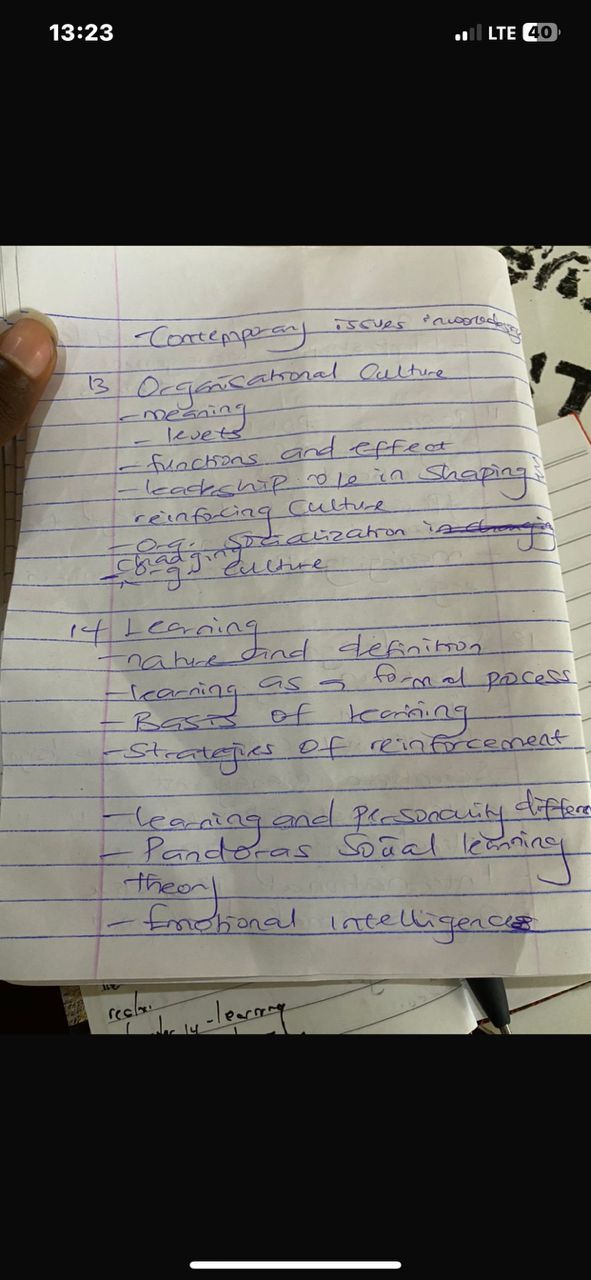 13:23
LTE 40
-Contemporary issues in
13 Organisational Culture
-meaning
- levels
-functions and effect
-leadership role in shaping
reinforcing Culture
-Org. Socialization in changing
-changing
org culture
14 Learning
-nature and definition
-learning as a formal process
-Basis of learning
-Strategies of reinforcement
-learning and personality differen
-Pandoras Social learning
theory
-Emotional intelligences
rectr.
14-learning